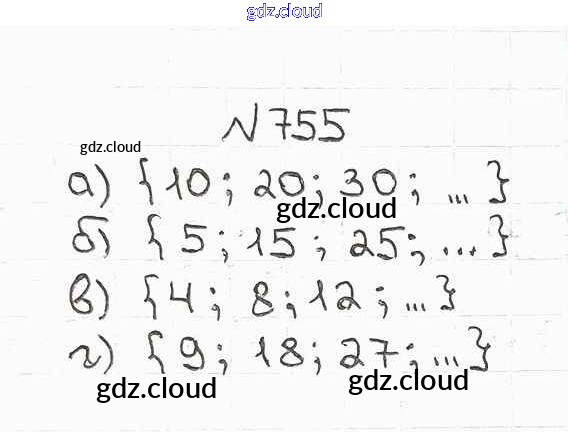 gdz.cloud
№ 755
gdz.cloud
а) {10; 20; 30; ...}
gdz.cloud
б) {5; 15; 25; ...}
в) {4; 8; 12; ...}
г) {9; 18; 27; ...}
gdz.cloud gdz.cloud